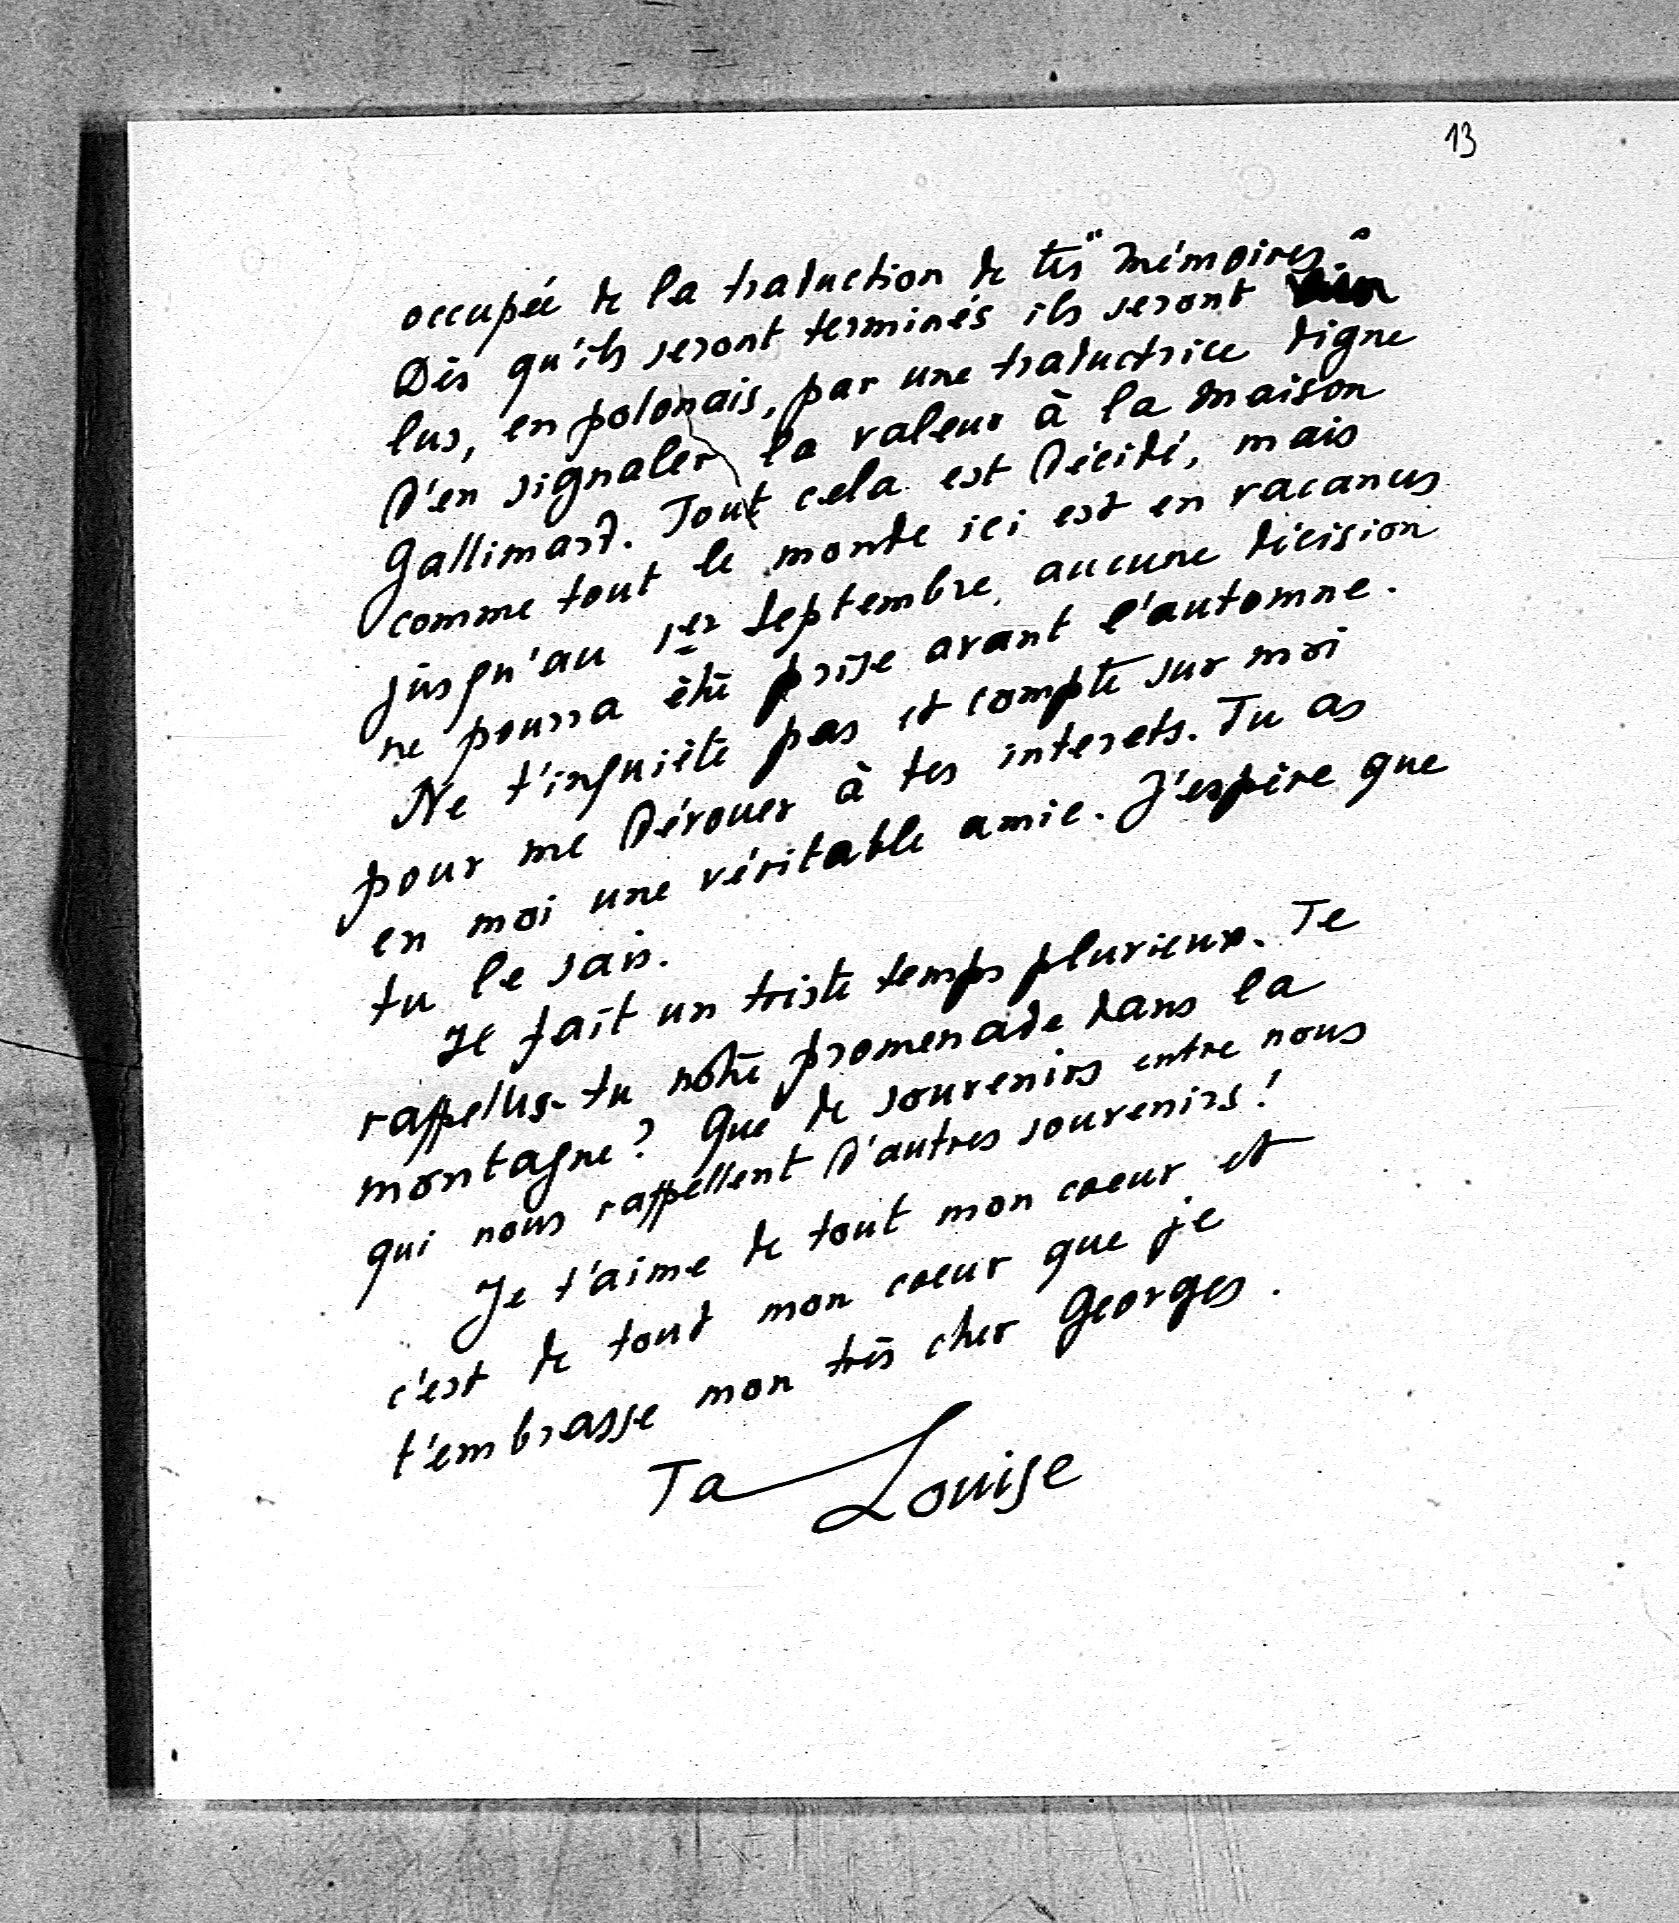 13
occupée de la traduction de tes "Mémoires"
Dès qu'ils seront terminés ils seront
lus, en polonais, par une traductrice digne
d'en signaler la valeur à la maison
Gallimard. Tout cela est décidé, mais
comme tout le monde ici est en vacances
jusqu'au 1er septembre, aucune décision
ne pourra être prise avant l'automne.
Ne t'inquiète pas et compte sur moi
pour me dévouer à tes interets. Tu as
en moi une véritable amie. J'espère que
tu le sais.
Il fait un triste temps pluvieux. Te
rappelles-tu notre promenade dans la
montagne? Que de souvenirs entre nous
qui nous rappellent d'autres souvenirs!
Je t'aime de tout mon coeur et
c'est de tout mon coeur que je
t'embrasse mon très cher Georges.
Ta Louise